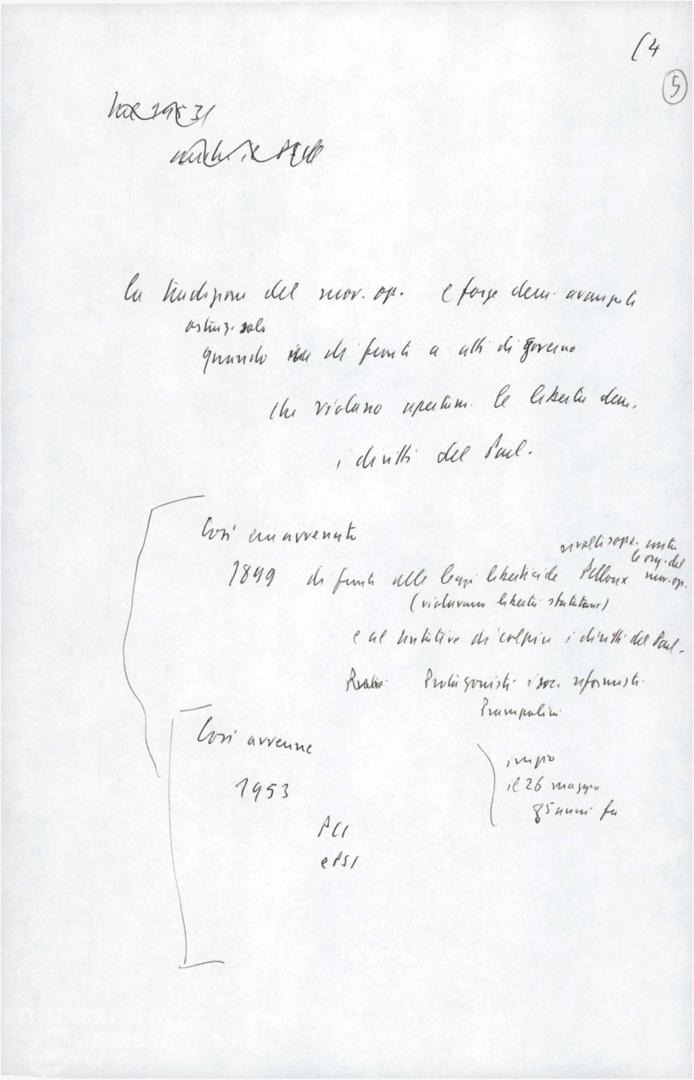 (4
5
nel 1953
anche il PSI
la tradizione del mov. op. e forze dem. avanzate
ostruz. solo
quando di fronte a atti di governo
che violano apertam. le libertà dem.
i diritti del Parl.
Così era avvenuto
rivolti sopr. contro
le org. del
1899 di fronte alle leggi liberticide Pelloux mov. op.
(violavano libertà statutarie)
e al tentativo di colpire i diritti del Parl.
Protagonisti i soc. riformisti
Prampolini
Così avvenne
1953
PCI
e PSI
iniziò
il 26 maggio
85 anni fa